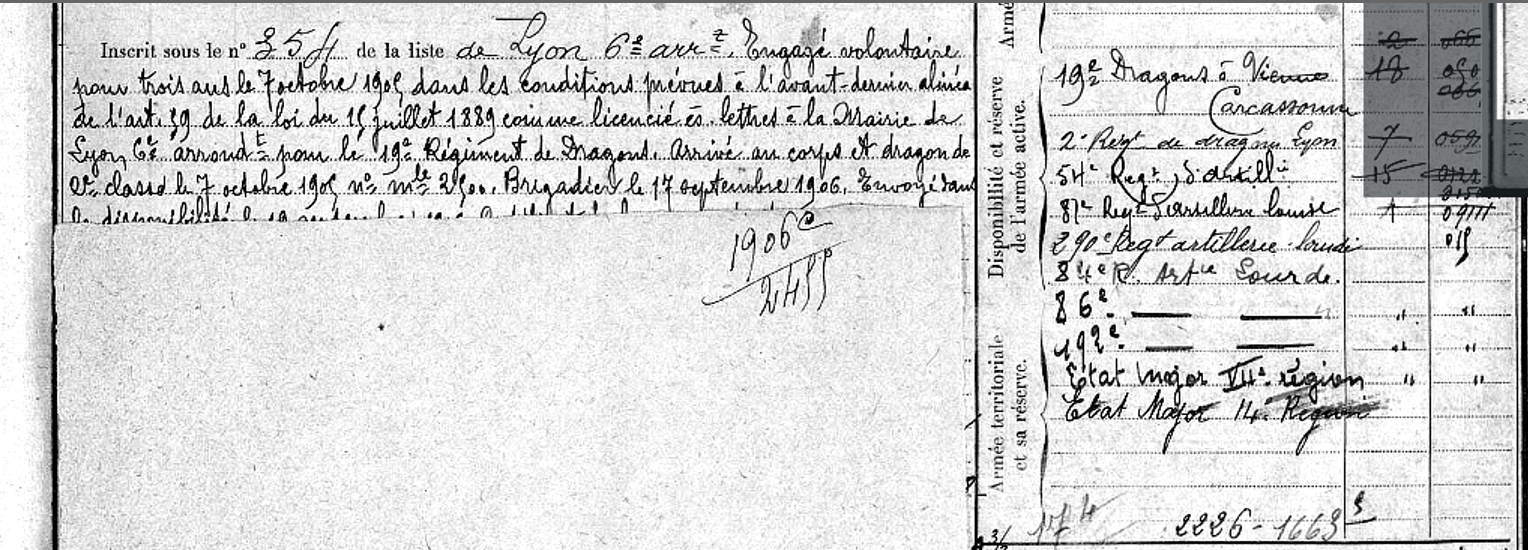 Inscrit sous le n° 354 de la liste de Lyon 6e arrt. Engagé volontaire
pour trois ans le 7 octobre 1905 dans les conditions prévues à l'avant-dernier alinéa
de l'art. 39 de la loi du 15 juillet 1889 comme licencié ès-lettres à la Mairie de
Lyon 6e arrondt pour le 19e Régiment de Dragons. Arrivé au corps et dragon de
2e classe le 7 octobre 1905 n° mle 2500. Brigadier le 17 septembre 1906. Envoyé dans
la disponibilité le
1906 C
2455
Armé
Disponibilité et réserve
de l'armée active.
19e Dragons à Vienne 18 050
Carcassonne
2e Regt de dragons Lyon 7 059
54e Regt d'artillie 15
81e Regt d'artillerie lourde 1
290e Regt artillerie lourde 015
84e R. Artie Lourde.
86e. — — " "
192e. — — " "
Armée territoriale
et sa réserve.
Etat Major VIIe région " "
Etat Major 14. Region
2226-1663